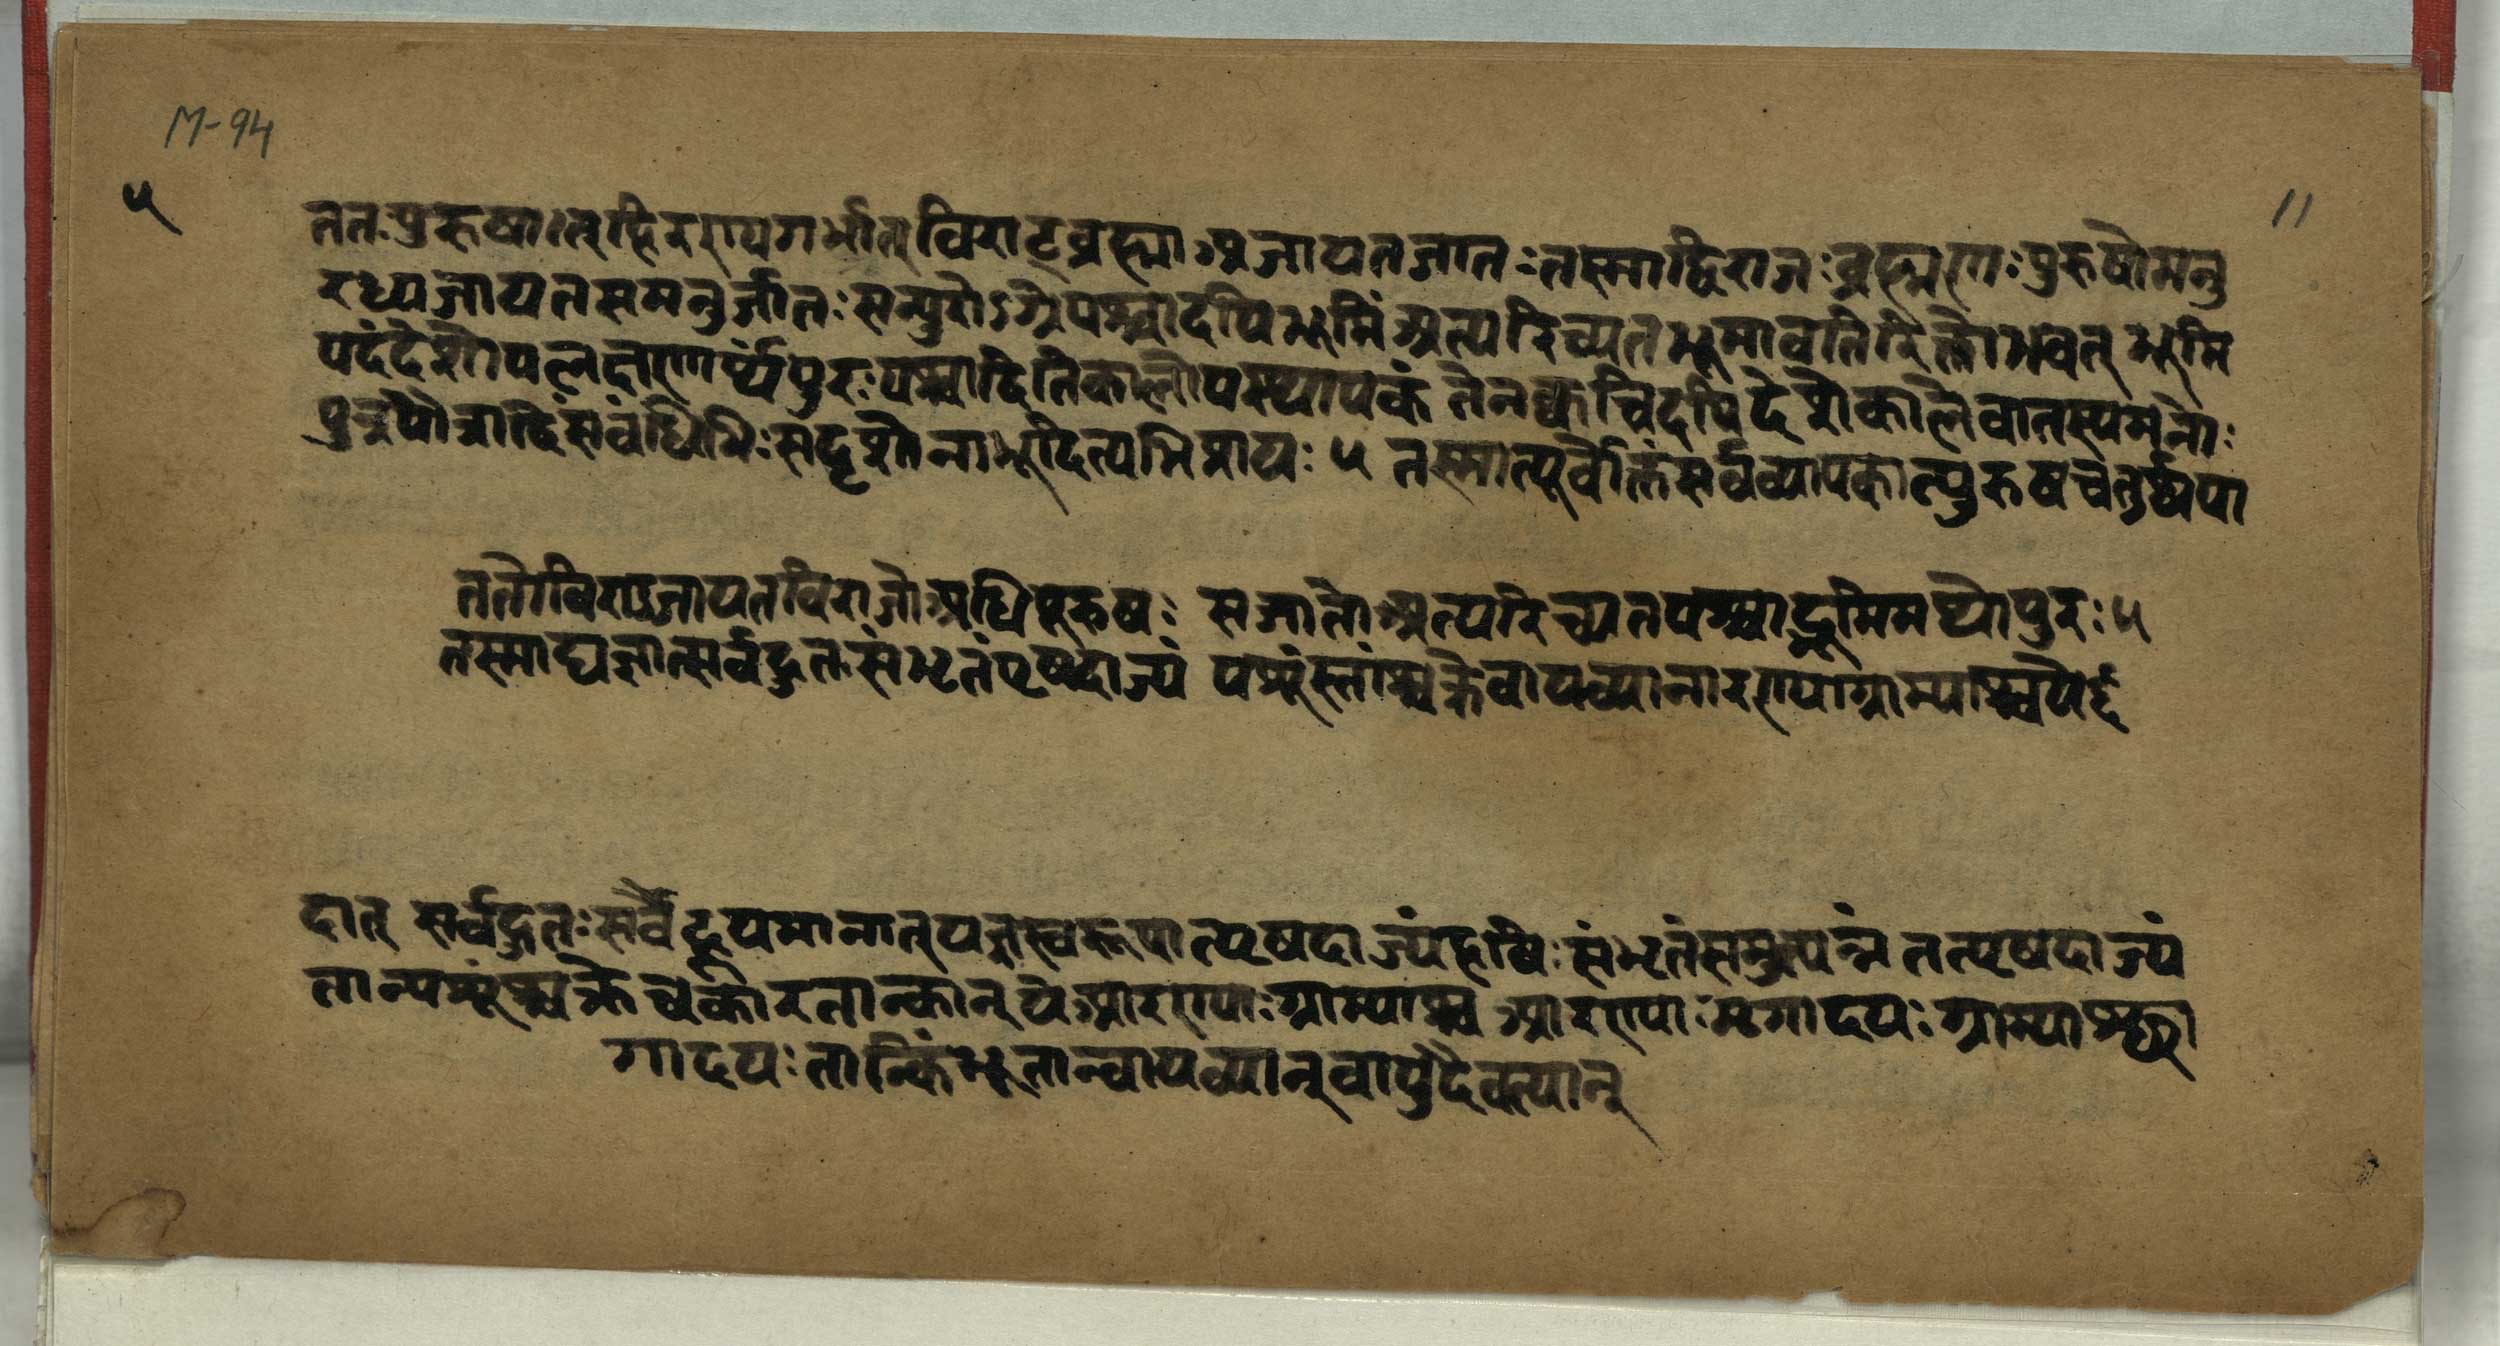 M-94
५
11
ततःपुरुषात् हिरण्यगर्भात् विराट्ब्रह्मा अजायतजातः तस्माद्विराजःब्रह्मणः पुरुषोमनु
रध्यजायतसमनुर्जातः सन्पुरोऽग्रेपश्चादपिभूमिं अत्यरिच्यतभूमावतिरिक्तोभवत् भूमि
पदंदेशोपलक्षणार्थंपुरःपश्चादितिकालोपस्थापकं तेनक्वचिदपिदेशेकालेवातस्यमनोः
पुत्रपौत्रादिसंबंधिभिः सदृशोनाभूदित्यभिप्रायः ५ तस्मात्पूर्वोक्तिसर्वव्यापकात्पुरुषचतुर्थपा
ततोविराडजायतविराजोअधिपुरुषः सजातोअत्यरिच्यतपश्चाद्भूमिमथोपुरः ५
तस्माद्यज्ञात्सर्वहुतःसंभृतंपृषदाज्यं पशूंस्तांश्चक्रेवायव्यानारण्याग्राम्याश्चये ६
दात् सर्वहुतःसर्वैर्हूयमानात् यज्ञस्वरूपात्पृषदाज्यंहविःसंभृतंसमुत्पन्नं तत्पृषदाज्यं
तान्पशूंश्चक्रेचकारतान्कान् येआरण्याःग्राम्याश्च आरण्याःमृगादयःग्राम्याश्छा
गादयःतान्किंभूतान्वायव्यान्वायुदेवत्यान्